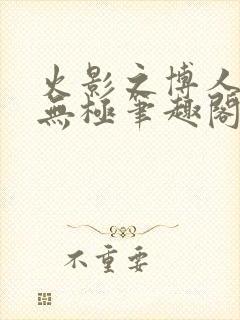 火影之博人
無極筆趣閣
不重要